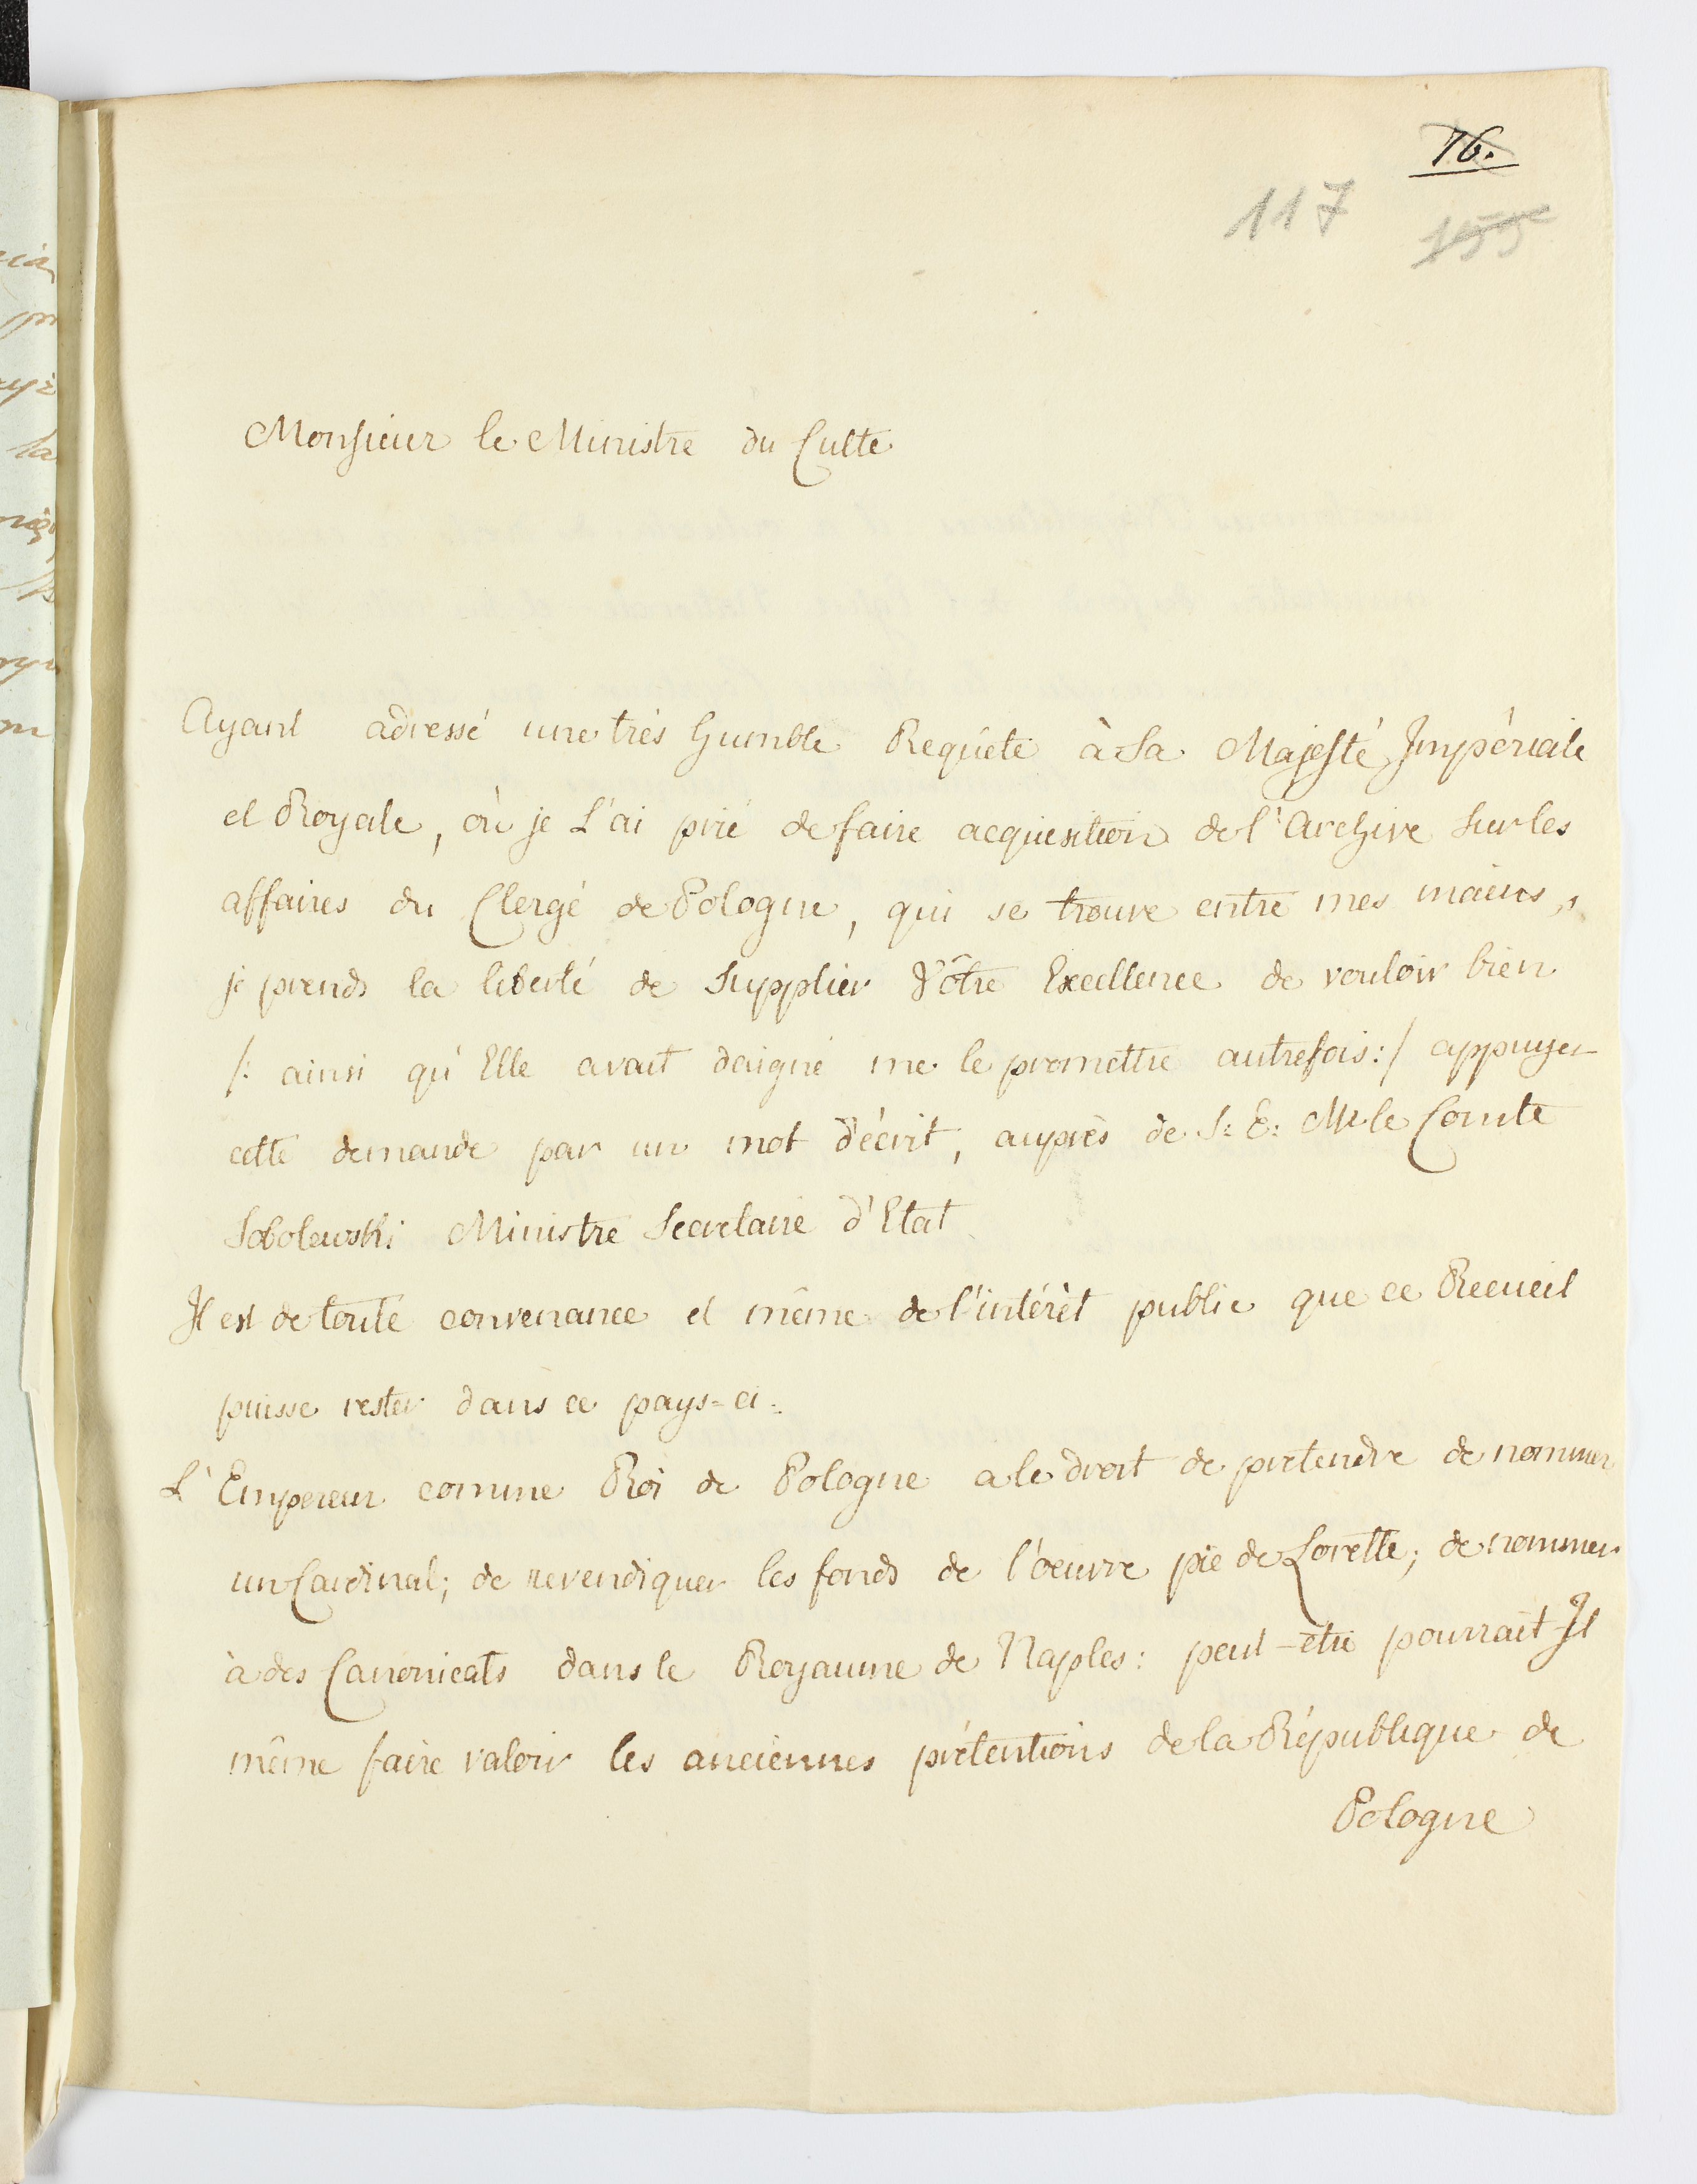 76.
117 155
Monsieur le Ministre du Culte
Ayant adressé une très humble Requête à Sa Majesté Impériale
et Royale, où je L'ai prié de faire acquisition de l'Archive sur les
affaires du Clergé de Pologne, qui se trouve entre mes mains,
je prends la liberté de Supplier Vôtre Excellence de vouloir bien
/: ainsi qu'Elle avait daigné me le promettre autrefois :/ appuyer
cette demande par un mot d'écrit, auprès de S: E: Mr le Comte
Sobolewski Ministre Secretaire d'Etat
Il est de toute convenance et même de l'intérêt public que ce Recueil
puisse rester dans ce pays=ci.
L'Empereur comme Roi de Pologne a le droit de prétendre de nommer
un Cardinal; de revendiquer les fonds de l'oeuvre pie de Lorette; de nommer
à des Canonicats dans le Royaume de Naples: peut-être pourrait-Il
même faire valoir les anciennes prétentions de la République de
Pologne